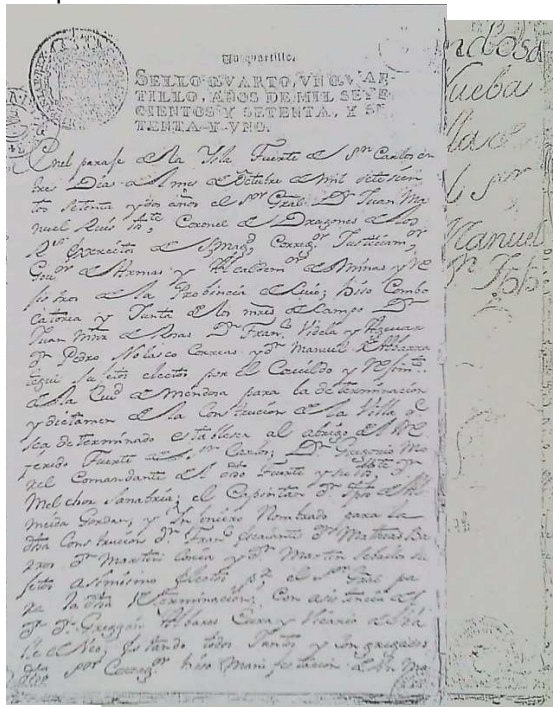 Un quartillo.
SELLO QVARTO, VN QVAR-
TILLO, AÑOS DE MIL SETE-
CIENTOS Y SETENTA, Y SE-
TENTA Y VNO.
En el paraje de la Isla Fuerte de Sn Carlos en
tres Dias del mes de Octubre de mil setecien
tos setenta y dos años el Sor Gral Dn Juan Ma
nuel Ruis Coronel de Dragones de los
Rs Exercitos de S Magd Corregr Justicia mor
Govor de Armas y Alcalde mor de Minas y Re
jistros de la Probincia de Cuio; hiso Combo
catoria y Junta de los mres de Campo Dn
Juan Mnz de Rosas Dn Franco Videla y Aguiar
Dn Pedro Nolasco Correas y Dn Manuel
sujetos electos por el Cavildo y Regimto
de la Ciud de Mendosa para la determinacion
y dictamen de la Construcion de la Villa q
sea determinado establesca al abrigo del Re
ferido Fuerte de Sn Carlos; Dn Gregorio Mo
rel Comandante del dho Fuerte y su Dn
Melchor Sanabria; el Capitan Dn
meida Gordan; y Nombrado para la
dha Construcion Dn Franco Dn Matheo
Dn Martin Coria y Dn Martin Seballos su
jetos asimismo Electos pr el Sor Gral pa
ra la dha determinacion; Con asistencia del
Dr Dn Gregorio Albares Cura y Vicario de
le de Uco; Estando todos Juntos y Congregados
dho Sor Corregr hiso Manifestacion de
ndosa
Nueba
lla de
Sor
Manuel